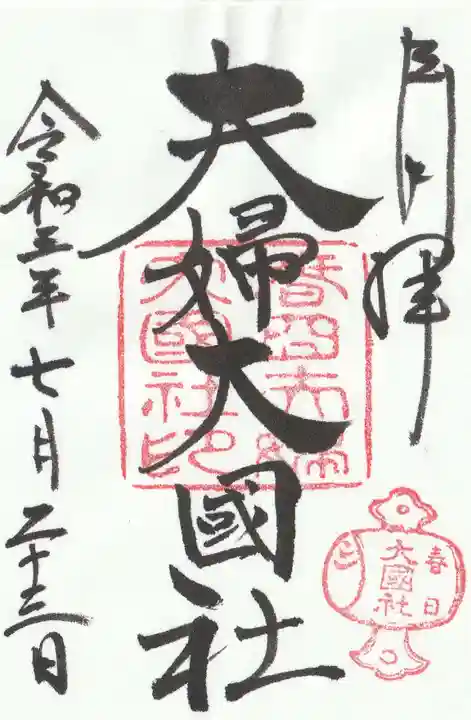 奉拝
夫婦大國社
令和三年七月二十三日
春日
大國社
春日夫婦
大國社印